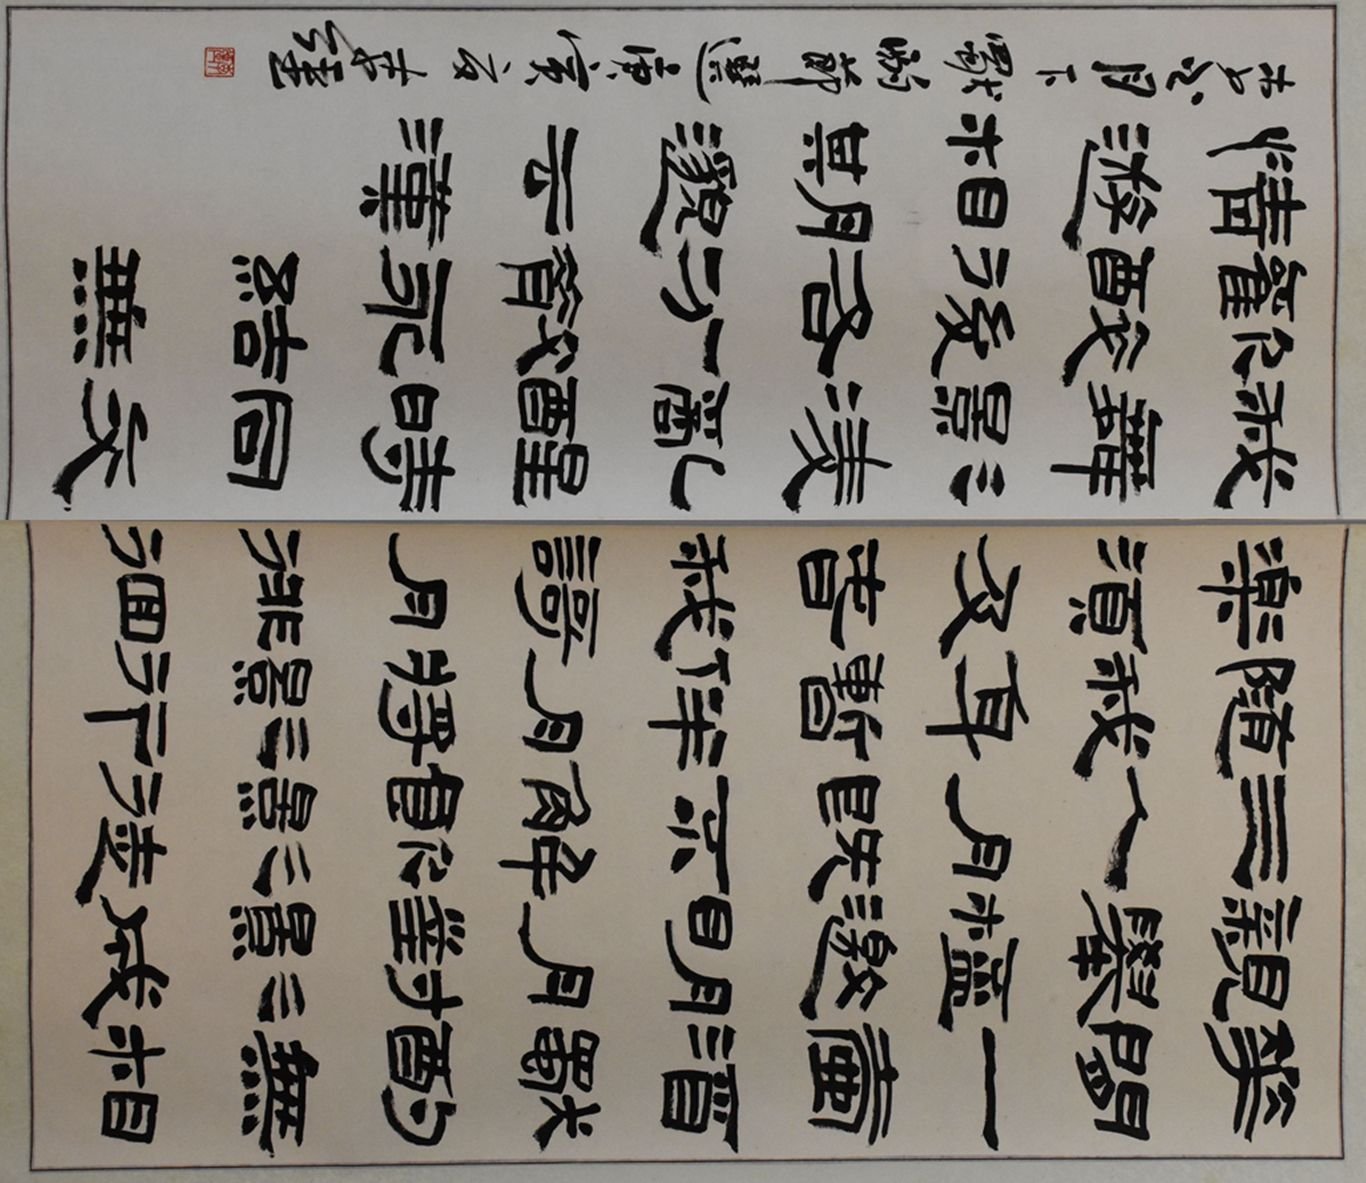 華間一壺酒獨酌無相
親舉杯邀明月對影成
三人月既不解飲影徒
隨我身暫伴月將影行
樂須及春我歌月徘徊
我舞影零亂醒時同交
歡醉後各分散永結無
情遊相期邈雲漢
月下獨酌節選庚寅